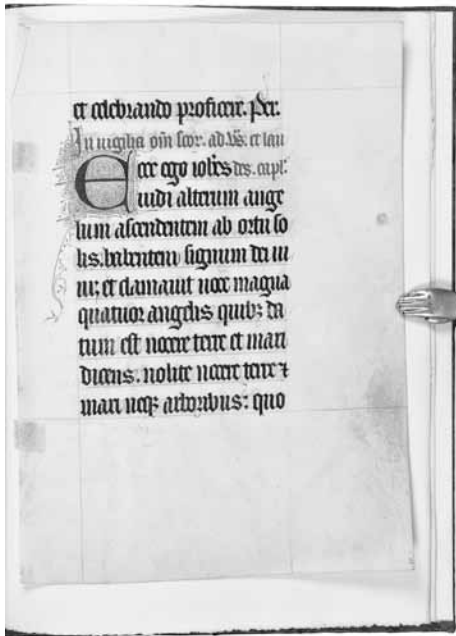 et celebrando proficere. Per.
In uigilia om̄ scor. ad vs. et lau
Ecce ego ioh̄es des. capl:
uidi alterum ange
lum ascendentem ab ortu so
lis. habentem signum dei ui
ui; et clamauit uoce magna
quatuor angelis quib; da
tum est nocere terre et mari
dicens. nolite nocere terre ⁊
mari neq; arboribus: quo